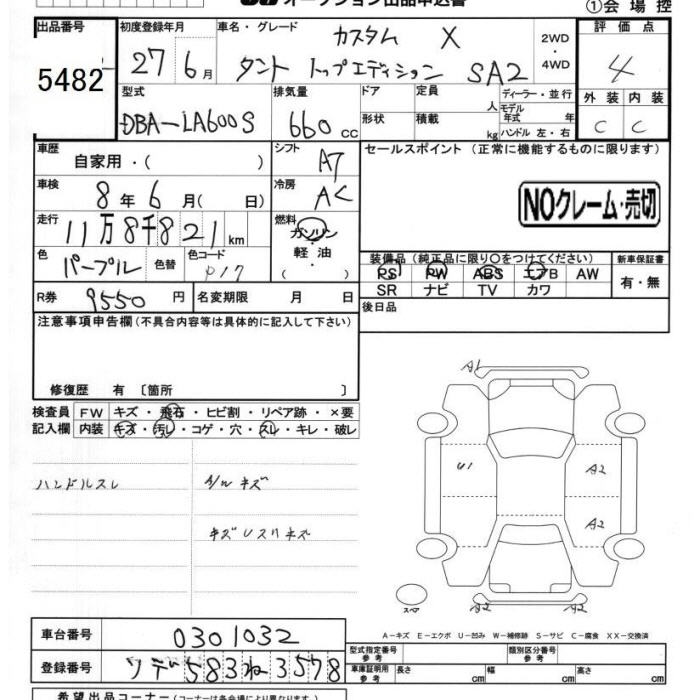 オークション出品申込書
①会場控
出品番号 5482
初度登録年月 27年 6月
車名・グレード カスタム X
タント トップエディション SA2
2WD・4WD
評価点 4
外装 内装
C C
型式 DBA-LA600S
排気量 660 cc
ドア 形状
定員 人
積載 kg
ディーラー・並行
モデル年式 年
ハンドル 左・右
車歴 自家用・( )
シフト AT
セールスポイント (正常に機能するものに限ります)
車検 8年6月( 日)
冷房 AC
NOクレーム・売切
走行 11万8千821km
燃料 ガソリン・軽油・( )
色 パープル 色替 色コード P17
装備品 (純正品に限り〇をつけてください)
新車保証書
PS PW ABS エアB AW
有・無
SR ナビ TV カワ
R券 9550円 名変期限 月 日
後日品
注意事項申告欄(不具合内容等は具体的に記入して下さい)
修復歴 有 〔箇所 〕
検査員 FW キズ・飛石・ヒビ割・リペア跡・×要
記入欄 内装 キズ・汚レ・コゲ・穴・スレ・キレ・破レ
ハンドルスレ
A/W キズ
キズUスリキズ
A1
U1
A2
A2
スペア
A2
A2
A-キズ E-エクボ U-凹み W-補修跡 S-サビ C-腐食 XX-交換済
車台番号 0301032
登録番号 583ね3578
型式指定番号 参考
類別区分番号 参考
車庫証明用 参考 長さ cm 幅 cm 高さ cm
希望出品コーナー(コーナーは各会場により異なります)